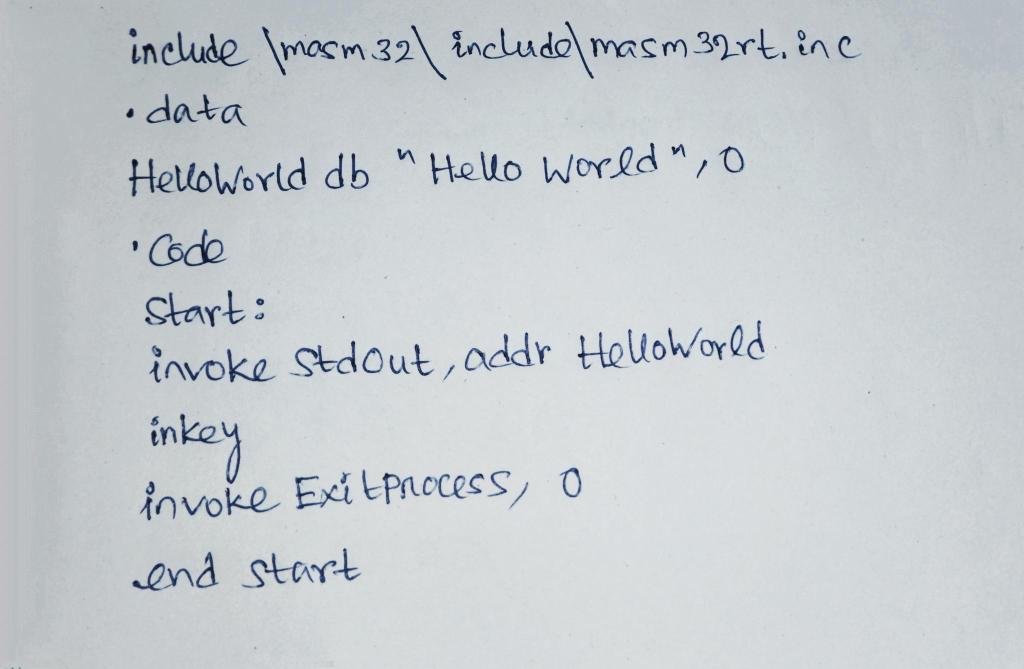 include \masm32\include\masm32rt.inc
.data
HelloWorld db "Hello World", 0
.Code
Start:
invoke StdOut, addr HelloWorld
inkey
invoke ExitProcess, 0
end start